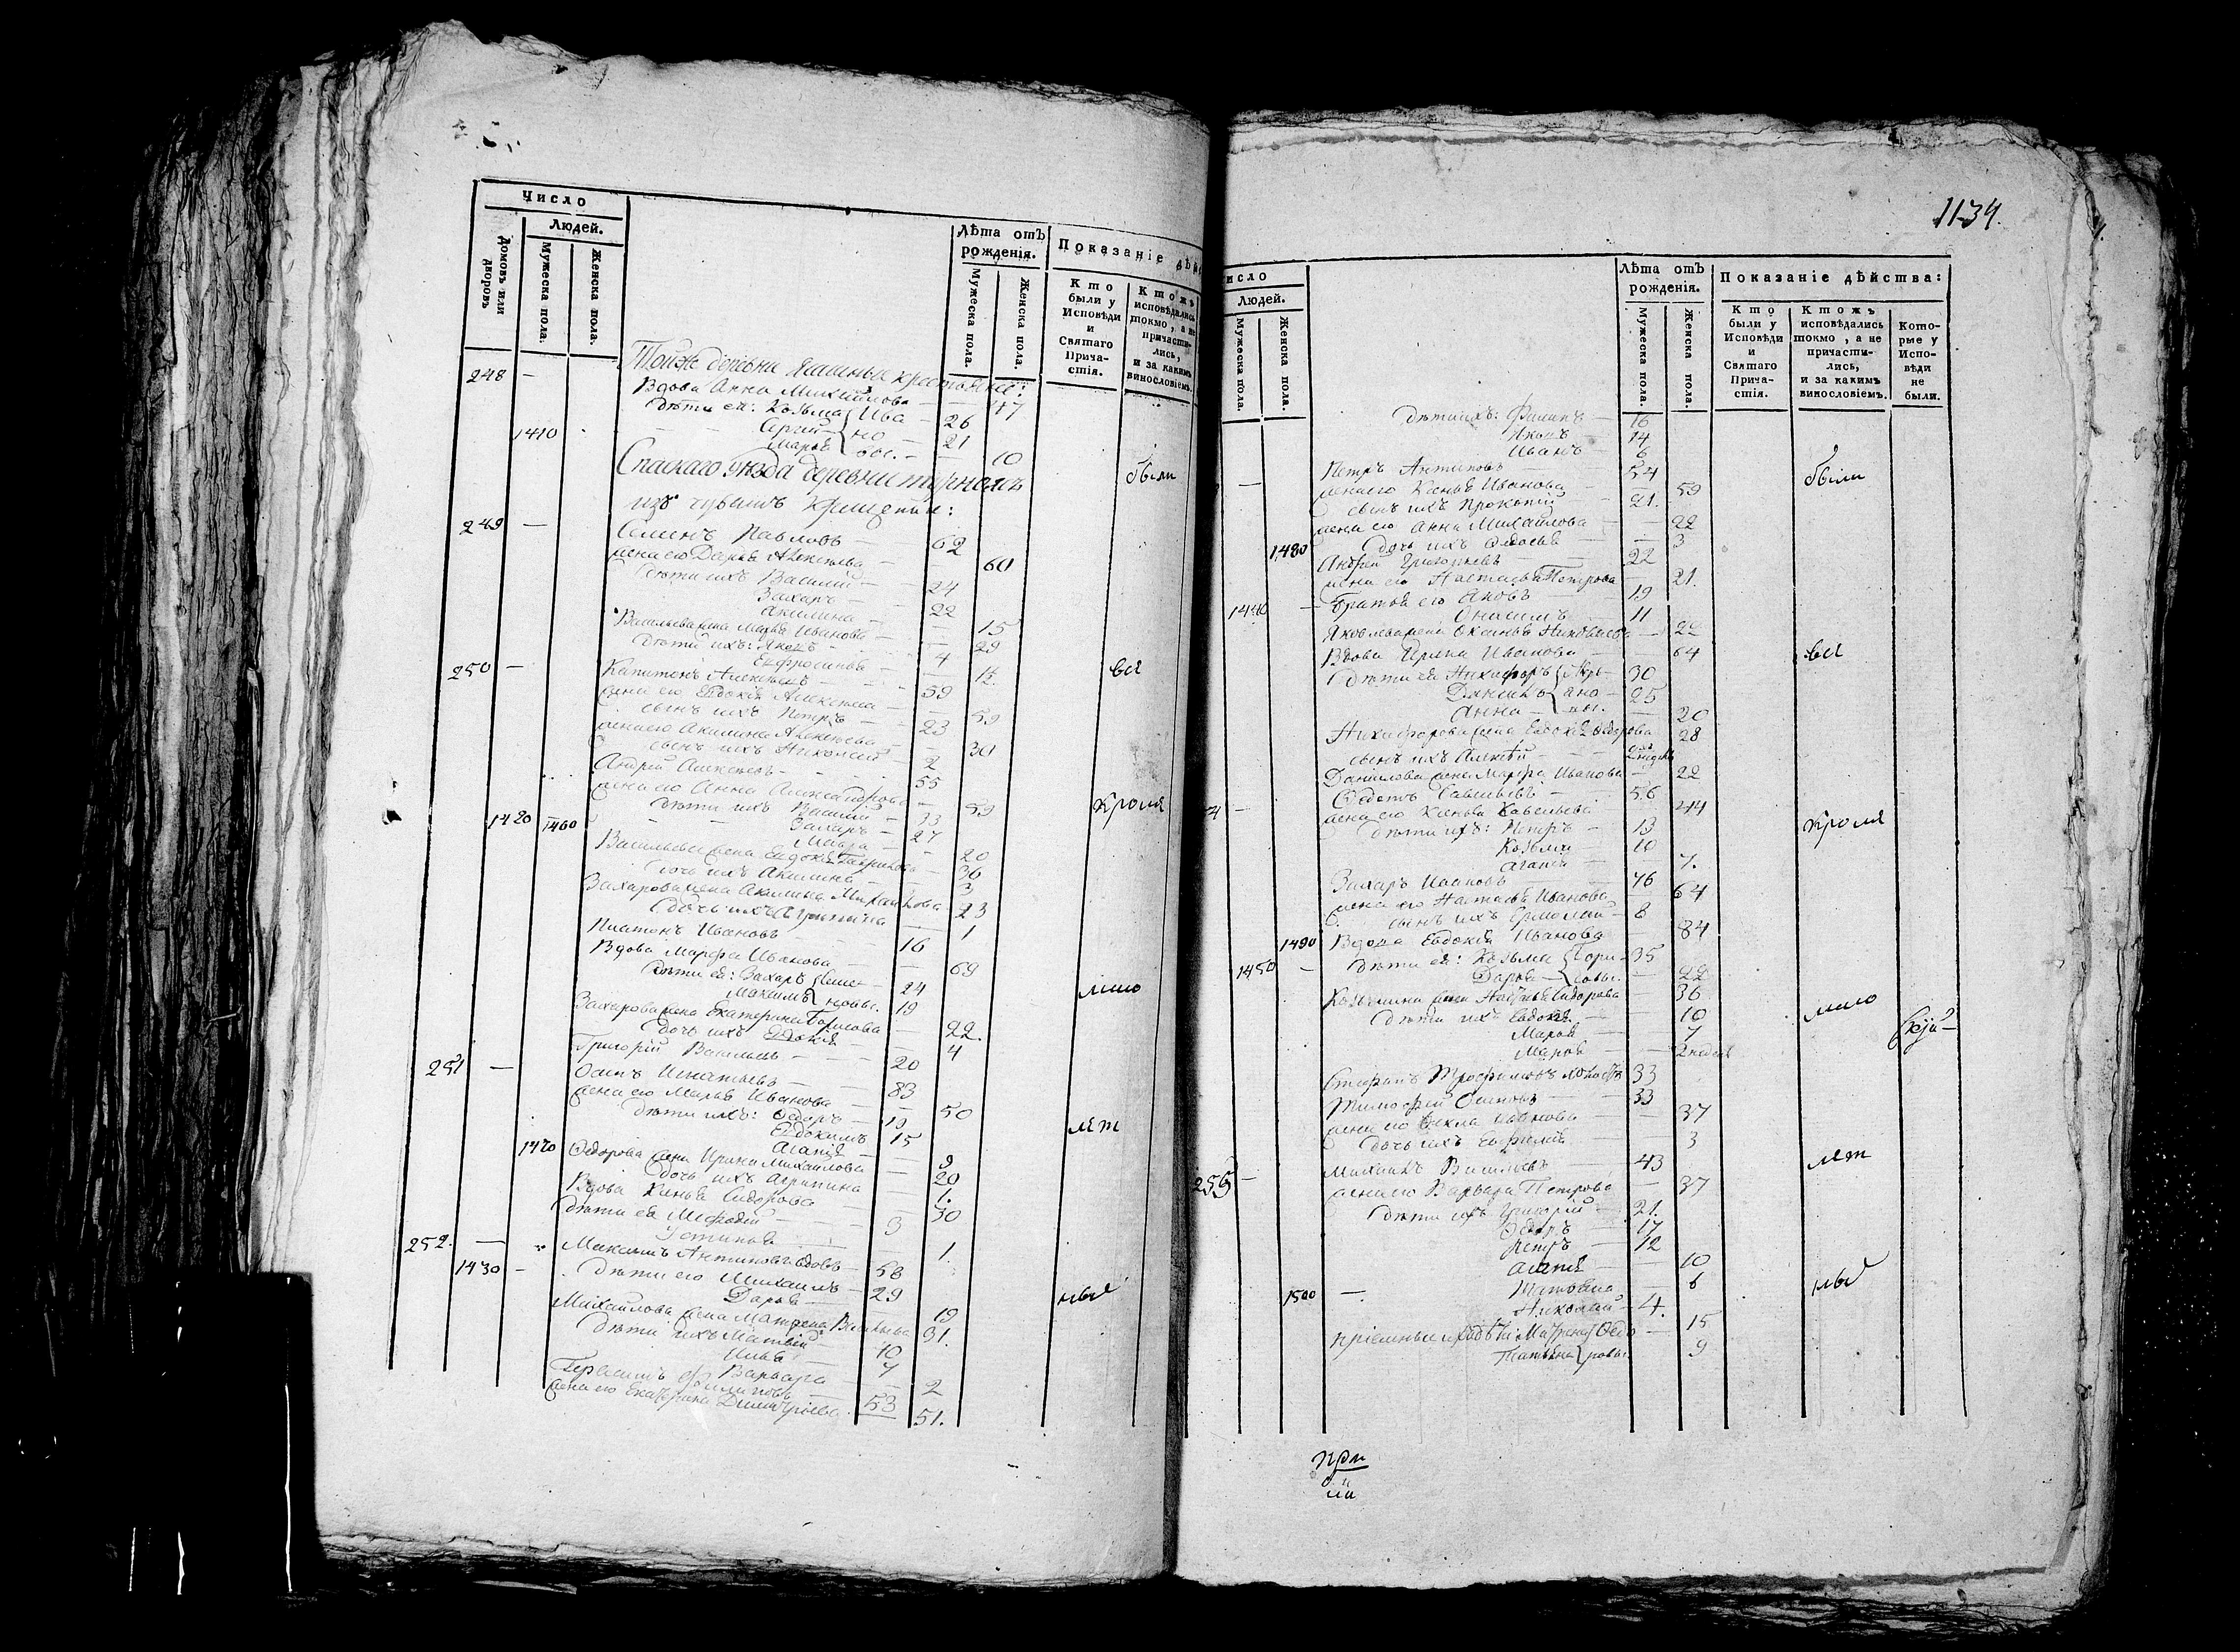 Число
Людей.
Домовъ или дворовъ
Мужеска пола.
Женска пола.
Лѣта отъ рожденія.
Мужеска пола.
Женска пола.
Показаніе дѣй
Кто были у Исповѣди и Святаго Прича-стія.
Ктожъ исповѣдались токмо, а не причасти-лись, и за какимъ винословіемъ.
248 — Тойже деревни ясашные крестьяне:
Вдова Анна Михайлова — 47
Дѣти ея: Козьма Ива 26
1410 Сергей но 21
Марья вы. — 10
Спаскаго уѣзда деревни
изъ чувашъ крещеныи: были
249 — Семенъ Павловъ — 62
жена его Дарья Алексѣева — 60
Дѣти ихъ Василий — 24
Захаръ — 22
Акилина — 15
Васильева жена Марья Иванова — 29
Дѣти ихъ: Яковъ — 4
Ефросинья —
250 — Капитонъ Алексѣевъ — 59 вси
жена его Евдокія Алексѣева — 59
сынъ ихъ Петръ — 23
жена его Акилина Алексѣева — 30
сынъ ихъ Николай — 2
Андрей Алексѣевъ — 55
жена его Анна Александрова — 59
Дѣти ихъ Василий — 33 кромѣ
1420 1460 Захаръ — 27
Мавра — 20
Васильева жена Евдокія — 36
дочь ихъ Акилина — 3
Захарова жена Акилина Михайлова 23
дочь ихъ Агрипина — 1
Платонъ Ивановъ — 16
Вдова Марфа Иванова — 69
Дѣти ея: Захаръ Семе 24
Максимъ новы. 19
Захарова жена Екатерина Борисова — 22. мало
дочь ихъ Евдокія — 4
Григорій Васильевъ — 20
251 — Осипъ Игнатьевъ — 83
жена его Марья Иванова — 50
Дѣти ихъ: Ѳедоръ — 19
Евдокимъ 15 лѣт
1470 Агапія — 9
Ѳедорова жена Ирина Михайлова — 20
дочь ихъ Агрипина — 1.
Вдова Ксенья Сидорова — 30
Дѣти ея Меѳодій — 3
Устинья — 1.
252. — Максимъ Антиповъ вдовъ — 58
1430 — Дѣти его Михаилъ — 29
Дарья — 19
Михайлова жена Матрена Васильева 31. ныя
Дѣти ихъ Матвей — 10
Илья — 7
Варвара — 2
Герасимъ Филиповъ — 53
жена его Екатерина Димитріева 51.
1134.
исло
Людей.
Мужеска пола.
Женска пола.
Лѣта отъ рожденія.
Мужеска пола.
Женска пола.
Показаніе дѣйства:
Кто были у Исповѣди и Святаго Прича-стія.
Ктожъ исповѣдались токмо, а не причасти-лись, и за какимъ винословіемъ.
Кото-рые у Испо-вѣди не были.
Дѣти ихъ: Филипъ — 16
Яковъ — 14
Иванъ — 6
— Петръ Антиповъ — 54 были
жена его Ксенья Иванова — 59
сынъ ихъ Прокопій — 21.
жена его Анна Михайлова — 22
1480 дочь ихъ Ѳедосья — 3
Андрей Григорьевъ — 22
жена его Настасья Петрова — 21.
1440 — Братья его Яковъ — 19
Онисимъ — 11
Яковлева жена Оксинья — 22
Вдова Ирина Иванова — 64 вси
Дѣти ея Никифоръ 30
Данило 25
Анна — вы. — 20
Никифорова жена Евдокія Ѳедорова 28
сынъ ихъ Алексѣй —
Данилова жена Марфа Иванова — 22
4 — Ѳедотъ Савельевъ — 56
жена его Ксенья Савельева — 44
Дѣти ихъ: Петръ — 13 кромѣ
Козьма — 10
Агапія — 7.
Захаръ Ивановъ — 76
жена его Настасья Иванова — 64
сынъ ихъ Ермолай — 8
1490 Вдова Евдокія Иванова — 84
1450 — Дѣти ея: Козьма Гори 35
Дарья — 22
Козьмина жена Настасья Сидорова — 36
Дѣти ихъ Евдокія — 10 мало
Марья — 7
Марья — 2 недели
Степанъ Трофимовъ холостъ 33
Тимофей Осиповъ — 33
жена его Ѳекла Иванова — 37
дочь ихъ Евфимія — 3
255 — Михаилъ Васильевъ — 43 лѣт
жена его Варвара Петрова — 37
Дѣти ихъ Григорій — 21.
Ѳедоръ — 17
Петръ — 12
Агапія — 10
1500 — Татьяна — 6 ныя
Николай — 4.
пріемные Матрена Ѳедо — 15
Татьяна ровы. 9